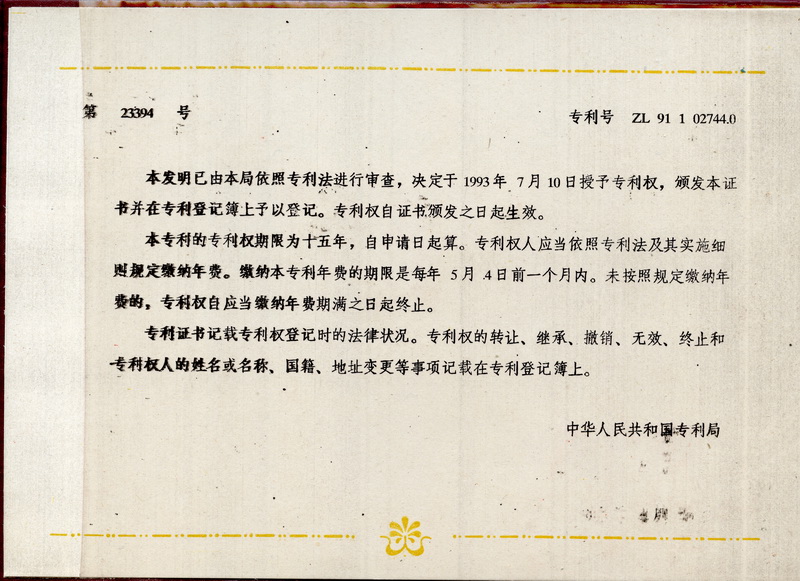 第 23394 号
专利号 ZL 91 1 02744.0
本发明已由本局依照专利法进行审查，决定于 1993 年 7 月 10 日授予专利权，颁发本证
书并在专利登记簿上予以登记。专利权自证书颁发之日起生效。
本专利的专利权期限为十五年，自申请日起算。专利权人应当依照专利法及其实施细
则规定缴纳年费。缴纳本专利年费的期限是每年 5 月 4 日前一个月内。未按照规定缴纳年
费的，专利权自应当缴纳年费期满之日起终止。
专利证书记载专利权登记时的法律状况。专利权的转让、继承、撤销、无效、终止和
专利权人的姓名或名称、国籍、地址变更等事项记载在专利登记簿上。
中华人民共和国专利局